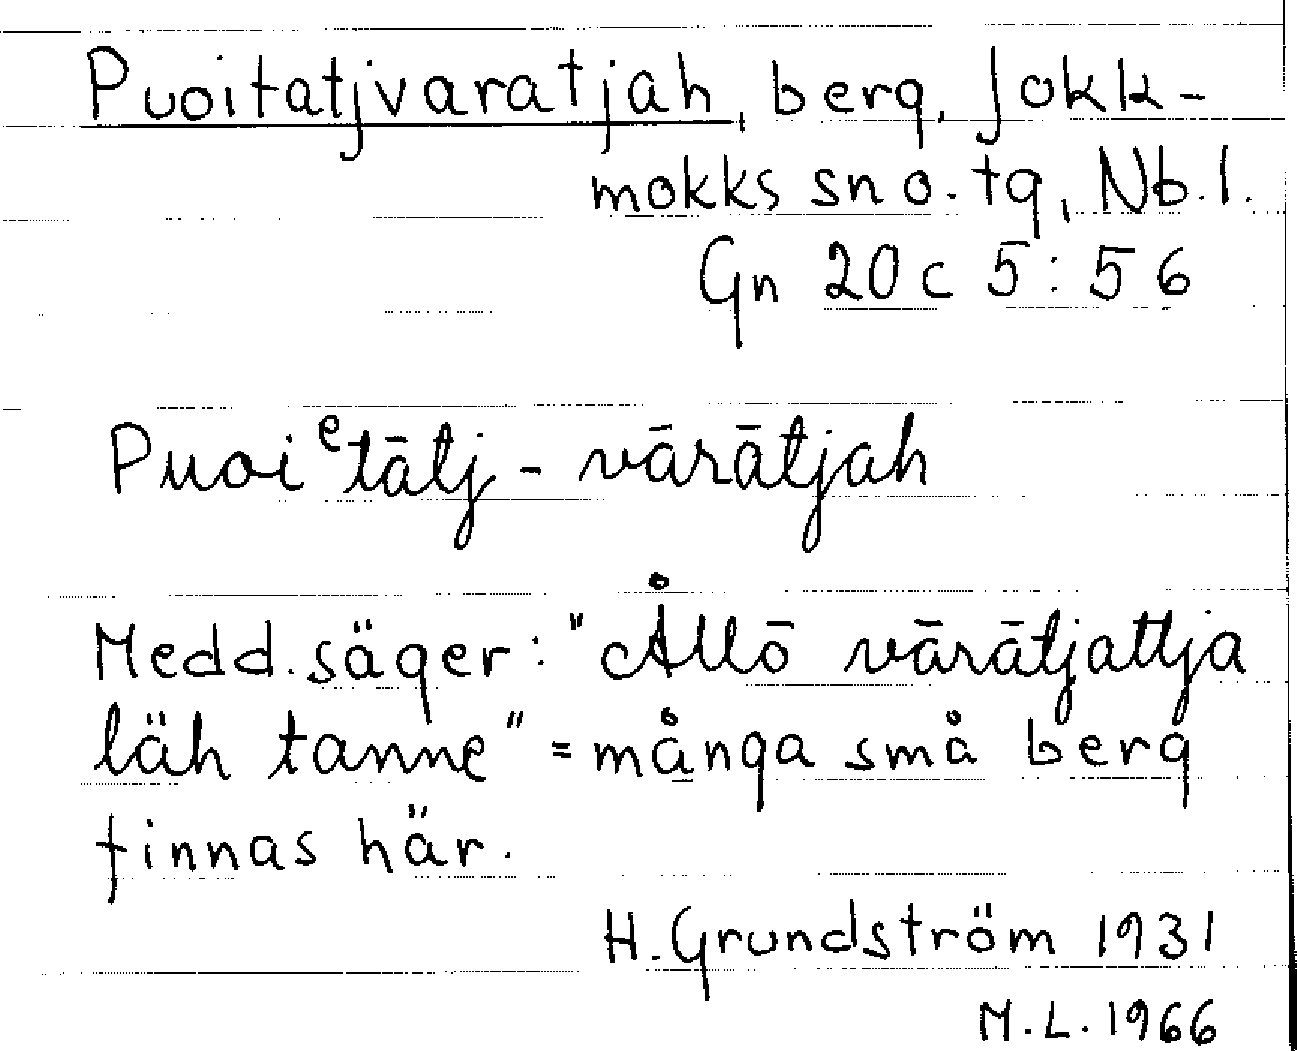 Puoitatjvaratjah, berg, Jokk-
mokks sn o. tg, Nb. l.
Gn 20c 5:56
Puoiᵉtātj-vārātjah
Medd. säger: "Ållō vārātjattja
läh tanne" = många små berg
finnas här.
H. Grundström 1931
M.L. 1966